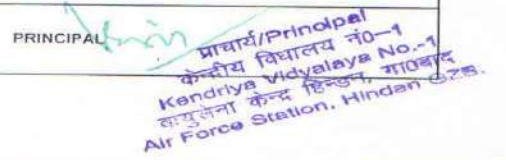 PRINCIPAL
प्राचार्य/Principal
केन्द्रीय विद्यालय नं0-1
Kendriya Vidyalaya No.-1
वायुसेना केन्द्र हिन्डन, गा0बाद
Air Force Station, Hindan G.ZB.